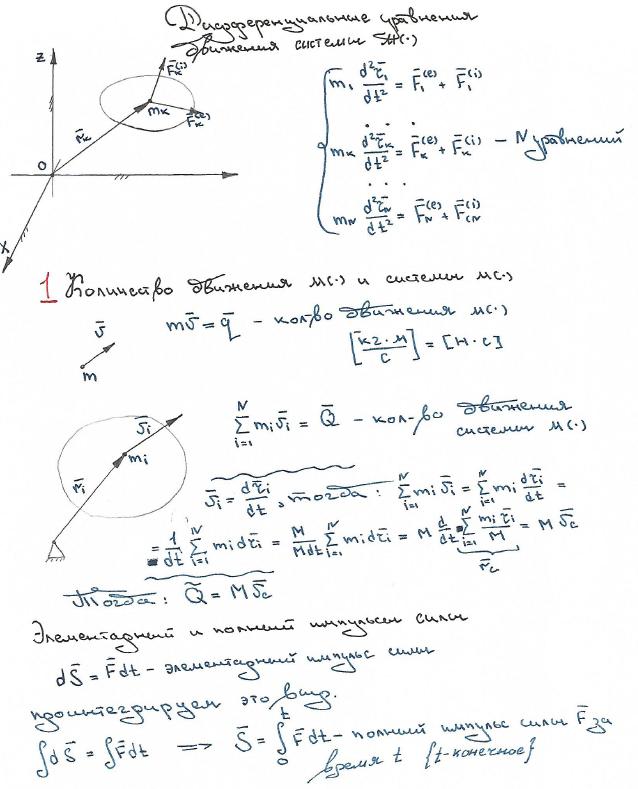 Дифференциальные уравнения
движения системы м(·)
z
F̄ₖ⁽ⁱ⁾
mₖ
F̄ₖ⁽ᵉ⁾
r̄ₖ
O
x
m₁ d²r̄₁/dt² = F̄₁⁽ᵉ⁾ + F̄₁⁽ⁱ⁾
. . .
mₖ d²r̄ₖ/dt² = F̄ₖ⁽ᵉ⁾ + F̄ₖ⁽ⁱ⁾ – N уравнений
. . .
m_N d²r̄_N/dt² = F̄_N⁽ᵉ⁾ + F̄_N⁽ⁱ⁾
1 Количество движения м(·) и системы м(·)
v̄
m
mv̄ = q̄ – кол-во движения м(·)
[кг·м/с] = [Н·с]
v̄ᵢ
mᵢ
r̄ᵢ
∑ᵢ₌₁ᴺ mᵢv̄ᵢ = Q̄ – кол-во движения
системы м(·)
v̄ᵢ = dr̄ᵢ/dt, тогда: ∑ᵢ₌₁ᴺ mᵢv̄ᵢ = ∑ᵢ₌₁ᴺ mᵢ dr̄ᵢ/dt =
= 1/dt ∑ᵢ₌₁ᴺ mᵢdr̄ᵢ = M/Mdt ∑ᵢ₌₁ᴺ mᵢdr̄ᵢ = M d/dt ∑ᵢ₌₁ᴺ mᵢr̄ᵢ/M = Mv̄c
r̄c
Тогда: Q̄ = Mv̄c
Элементарный и полный импульсы силы
dS̄ = F̄dt – элементарный импульс силы
проинтегрируем это выр.
∫dS̄ = ∫F̄dt ⟹ S̄ = ∫₀ᵗ F̄dt – полный импульс силы F̄ за
время t {t-конечное}